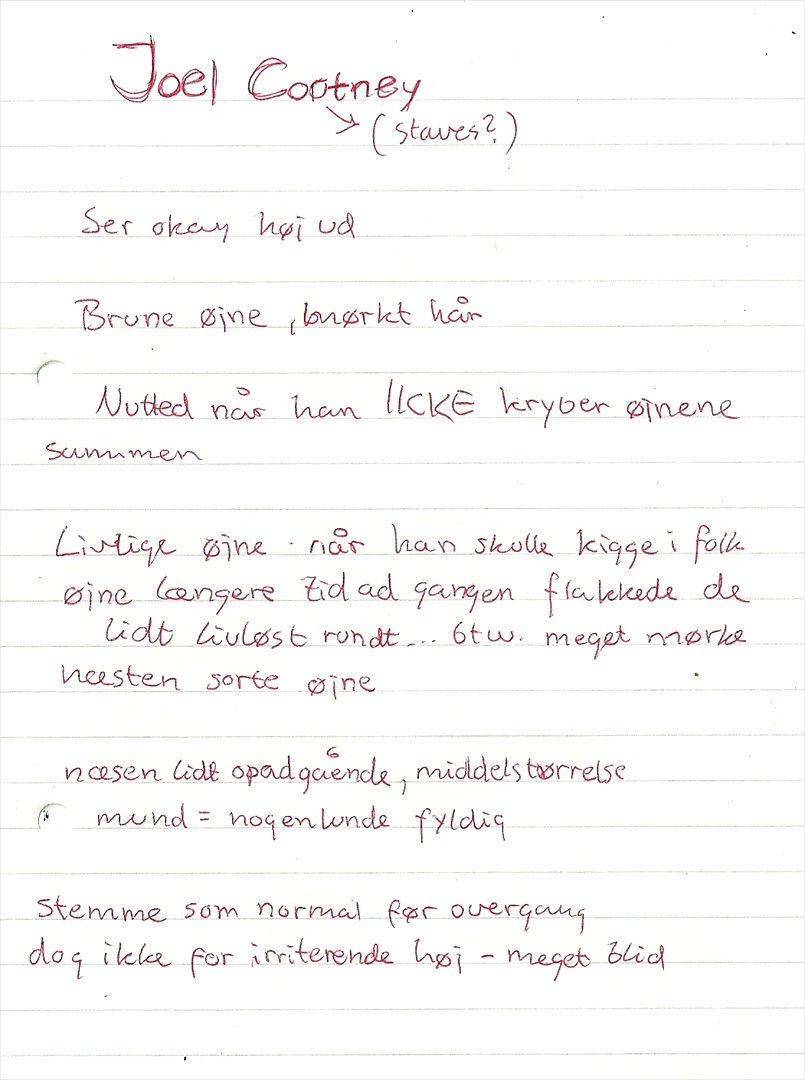 Joel Cootney
(staves?)
Ser okay høj ud
Brune øjne, mørkt hår
Nutted når han IKKE kryber øjnene
sammen
Livlige øjne - når han skulle kigge i folk
øjne længere tid ad gangen flakkede de
lidt livløst rundt... btw. meget mørke
næsten sorte øjne
næsen lidt opadgående, middelstørrelse
mund = nogenlunde fyldig
stemme som normal før overgang
dog ikke for irriterende høj - meget blid